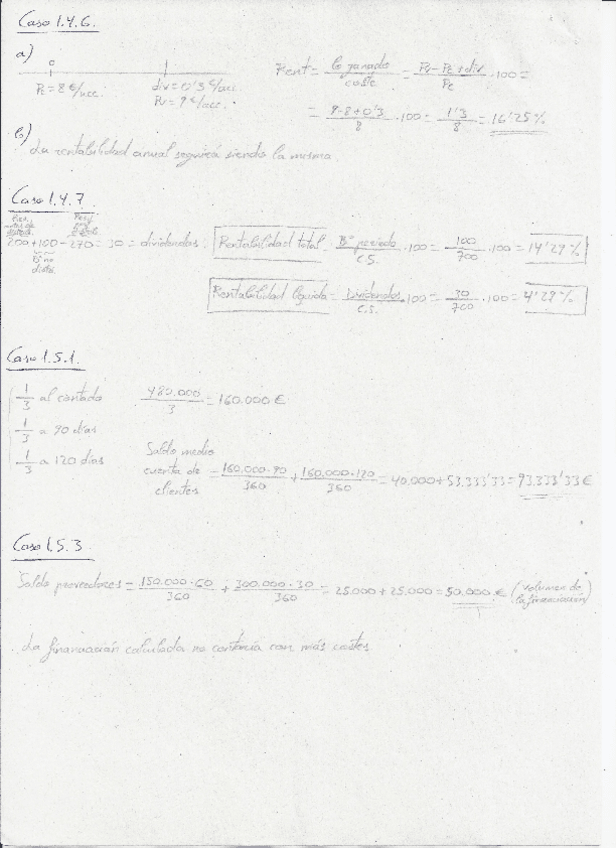 Caso 1.4.6.
a)
0
Pc = 8 €/acc. div = 0'3 €/acc.
Pv = 9 €/acc.
Rent = lo ganado / coste = Pv - Pc + div / Pc · 100 =
= 9-8+0'3 / 8 · 100 = 1'3 / 8 = 16'25 %
b)
La rentabilidad anual seguirá siendo la misma.
Caso 1.4.7
200 + 100 - 270 = 30 = dividendos.
Bº no
distr.
Rentabilidad total = Bº periodo / C.S. · 100 = 100 / 700 · 100 = 14'29 %
Rentabilidad líquida = Dividendos / C.S. · 100 = 30 / 700 · 100 = 4'29 %
Caso 1.5.1.
1/3 al contado 480.000 / 3 = 160.000 €
1/3 a 90 días
1/3 a 120 días
Saldo medio
cuenta de
clientes = 160.000·90 / 360 + 160.000·120 / 360 = 40.000 + 53.333'33 = 93.333'33 €
Caso 1.5.3.
Saldo proveedores = 150.000·60 / 360 + 300.000·30 / 360 = 25.000 + 25.000 = 50.000 € (volumen de
la financiación)
La financiación calculada no contaría con más costes.